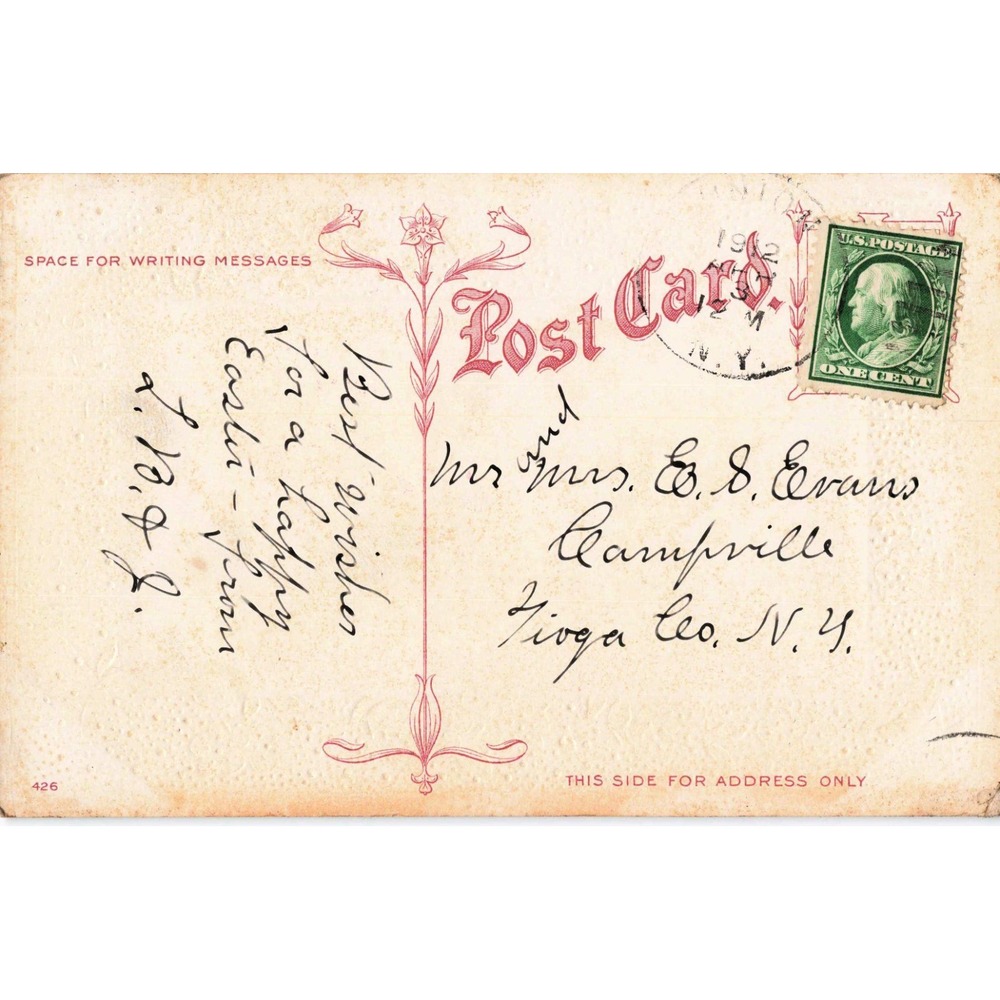 SPACE FOR WRITING MESSAGES
Post Card.
UNION
1912
12 M
N.Y.
U.S. POSTAGE
ONE CENT
Best wishes
for a happy
Easter - from
L. B. & J.
Mr and Mrs. E. S. Evans
Campville
Tioga Co. N. Y.
426
THIS SIDE FOR ADDRESS ONLY